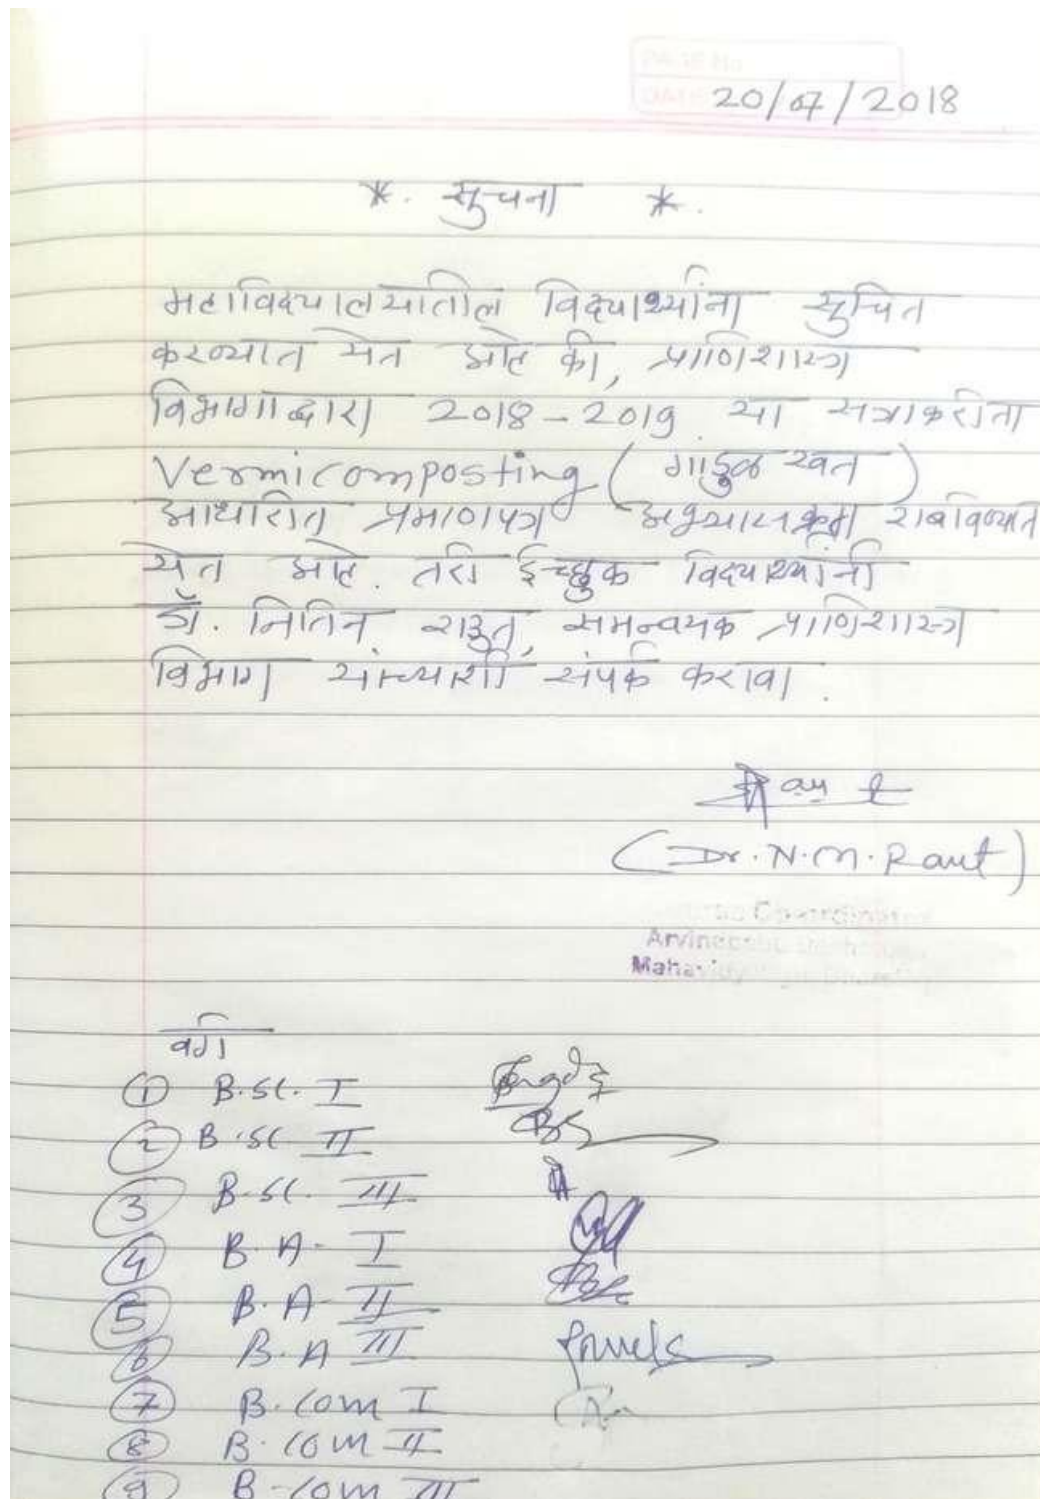 PAGE No
DATE 20/07/2018
*. सुचना *.
महाविद्यालयातील विद्यार्थ्यांना सुचित
करण्यात येत आहे की, प्राणिशास्त्र
विभागाद्वारा 2018-2019 या सत्राकरीता
Vermicomposting (गांडुळ खत)
आधारित प्रमाणपत्र अभ्यासक्रम राबविण्यात
येत आहे. तरी ईच्छुक विद्यार्थ्यांनी
डॉ. नितिन राऊत, समन्वयक प्राणिशास्त्र
विभाग यांच्याशी संपर्क करावा.
(Dr. N.M. Raut)
वर्ग
1 B.Sc. I
2 B.Sc II
3 B.Sc. III
4 B.A. I
5 B.A. II
6 B.A III
7 B.Com I
8 B.Com II
9 B-Com III